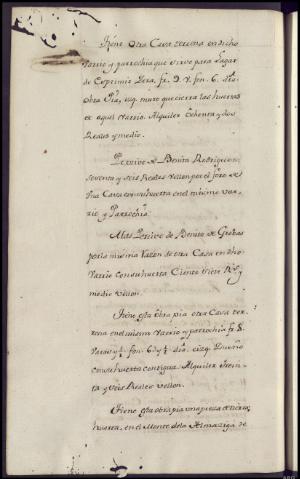 Tiene otra Casa terrena en dicho
Varrio y parrochia que sirve para Lagar
de Esprimir Zera, fr. 9. V. fon. 6. dra.
obra Pia, izq. muro que cierra las huertas
de aquel Varrio. Alquiler Ochenta y dos
Reales y medio.
Percive de Benito Rodriguez
seventa y seis Reales vellon por el foro de
una Casa con su huerta en el mismo Var-
rio y Parrochia
Mas Percive de Benito de
por la misma razon de otra Casa en dho
Varrio con su huerta Ciento treze Rs. y
medio vellon.
Tiene esta obra pia otra Casa ter-
rena en el mismo Varrio y parrochia fr. 8.
Varas y ½ fon. 6 y ½ dra. e izq.
con su huerta contigua. Alquiler Trein-
ta y seis Reales vellon.
Tiene esta obra pia una pieza
huerta, en el Monte de la Almaziga de